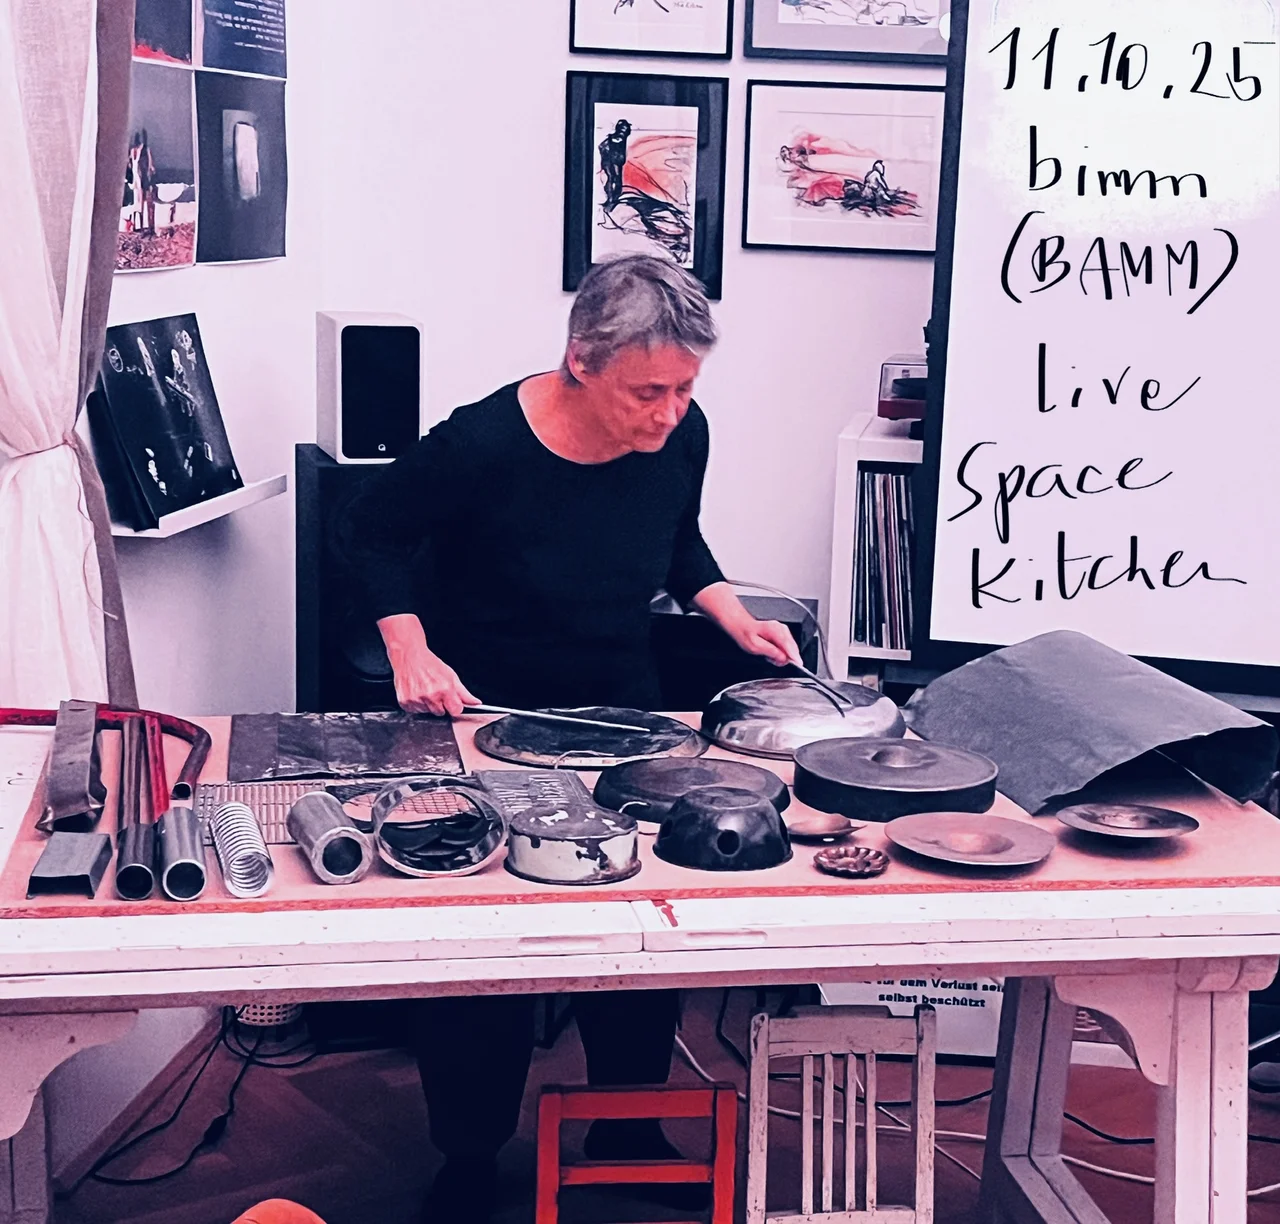 11.10.25
bimm
(BAMM)
live
Space
Kitchen
dem Verlust
selbst beschützt